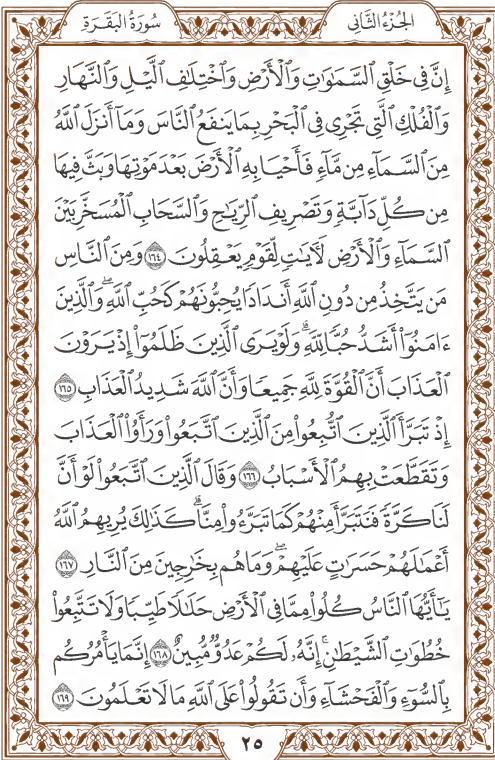 الجُزْءُ الثَّانِي سُورَةُ البَقَرَةِ
إِنَّ فِي خَلْقِ ٱلسَّمَٰوَٰتِ وَٱلْأَرْضِ وَٱخْتِلَٰفِ ٱلَّيْلِ وَٱلنَّهَارِ
وَٱلْفُلْكِ ٱلَّتِي تَجْرِي فِي ٱلْبَحْرِ بِمَا يَنفَعُ ٱلنَّاسَ وَمَآ أَنزَلَ ٱللَّهُ
مِنَ ٱلسَّمَآءِ مِن مَّآءٍ فَأَحْيَا بِهِ ٱلْأَرْضَ بَعْدَ مَوْتِهَا وَبَثَّ فِيهَا
مِن كُلِّ دَآبَّةٍ وَتَصْرِيفِ ٱلرِّيَٰحِ وَٱلسَّحَابِ ٱلْمُسَخَّرِ بَيْنَ
ٱلسَّمَآءِ وَٱلْأَرْضِ لَأٓيَٰتٍ لِّقَوْمٍ يَعْقِلُونَ ١٦٤ وَمِنَ ٱلنَّاسِ
مَن يَتَّخِذُ مِن دُونِ ٱللَّهِ أَندَادًا يُحِبُّونَهُمْ كَحُبِّ ٱللَّهِۖ وَٱلَّذِينَ
ءَامَنُوٓا۟ أَشَدُّ حُبًّا لِّلَّهِۗ وَلَوْ يَرَى ٱلَّذِينَ ظَلَمُوٓا۟ إِذْ يَرَوْنَ
ٱلْعَذَابَ أَنَّ ٱلْقُوَّةَ لِلَّهِ جَمِيعًا وَأَنَّ ٱللَّهَ شَدِيدُ ٱلْعَذَابِ ١٦٥
إِذْ تَبَرَّأَ ٱلَّذِينَ ٱتُّبِعُوا۟ مِنَ ٱلَّذِينَ ٱتَّبَعُوا۟ وَرَأَوُا۟ ٱلْعَذَابَ
وَتَقَطَّعَتْ بِهِمُ ٱلْأَسْبَابُ ١٦٦ وَقَالَ ٱلَّذِينَ ٱتَّبَعُوا۟ لَوْ أَنَّ
لَنَا كَرَّةً فَنَتَبَرَّأَ مِنْهُمْ كَمَا تَبَرَّءُوا۟ مِنَّاۗ كَذَٰلِكَ يُرِيهِمُ ٱللَّهُ
أَعْمَٰلَهُمْ حَسَرَٰتٍ عَلَيْهِمْۖ وَمَا هُم بِخَٰرِجِينَ مِنَ ٱلنَّارِ ١٦٧
يَٰٓأَيُّهَا ٱلنَّاسُ كُلُوا۟ مِمَّا فِي ٱلْأَرْضِ حَلَٰلًا طَيِّبًا وَلَا تَتَّبِعُوا۟
خُطُوَٰتِ ٱلشَّيْطَٰنِۚ إِنَّهُۥ لَكُمْ عَدُوٌّ مُّبِينٌ ١٦٨ إِنَّمَا يَأْمُرُكُم
بِٱلسُّوٓءِ وَٱلْفَحْشَآءِ وَأَن تَقُولُوا۟ عَلَى ٱللَّهِ مَا لَا تَعْلَمُونَ ١٦٩
٢٥